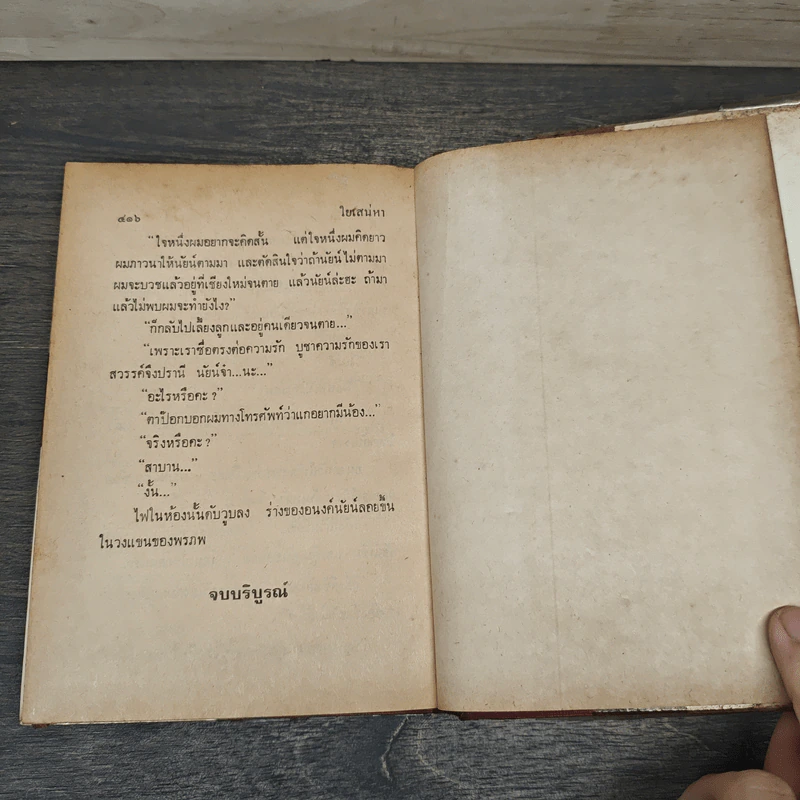 ๔๑๖ ใยเสน่หา
“ใจหนึ่งผมอยากจะคิดสั้น แต่ใจหนึ่งผมคิดยาว
ผมภาวนาให้นัยน์ตามมา และตัดสินใจว่าถ้านัยน์ไม่ตามมา
ผมจะบวชแล้วอยู่ที่เชียงใหม่จนตาย แล้วนัยน์ล่ะฮะ ถ้ามา
แล้วไม่พบผมจะทำยังไง?”
“ก็กลับไปเลี้ยงลูกและอยู่คนเดียวจนตาย...”
“เพราะเราซื่อตรงต่อความรัก บูชาความรักของเรา
สวรรค์จึงปรานี นัยน์จ๋า...นะ...”
“อะไรหรือคะ ?”
“ตาป๊อกบอกผมทางโทรศัพท์ว่าแกอยากมีน้อง...”
“จริงหรือคะ ?”
“สาบาน...”
“งั้น...”
ไฟในห้องนั้นดับวูบลง ร่างของอนงค์นัยน์ลอยขึ้น
ในวงแขนของพรภพ
จบบริบูรณ์